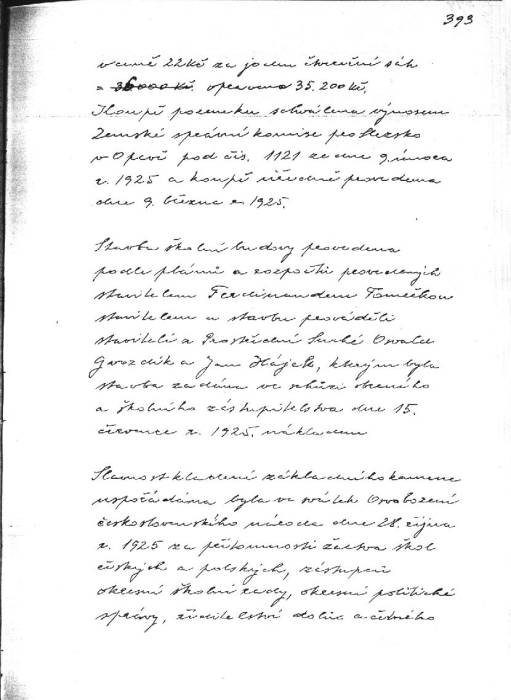 393
v ceně 22 Kč za jeden čtvereční sáh
= 36000 Kč. opraveno 35.200 Kč.
Koupě pozemku schválena výnosem
Zemské správní komise pro Slezsko
v Opavě pod čís. 1121 ze dne 9. února
r. 1925 a koupě úředně provedena
dne 9. března r. 1925.
Stavba školní budovy provedena
podle plánů a rozpočtů provedených
stavitelem Ferdinandem Tomečkou
stavitelem a stavbu prováděli
stavitelé z Prostřední Suché Osvald
Gvozdík a Jan Hájek, kterým byla
stavba zadána ve schůzi obecního
a školního zástupitelstva dne 15.
července r. 1925 nákladem
Slavnost kladení základního kamene
uspořádána byla ve svátek Osvobození
československého národa dne 28. října
r. 1925 za přítomnosti žactva škol
českých a polských, zástupců
okresní školní rady, okresní politické
správy, ředitelství dolů a četného